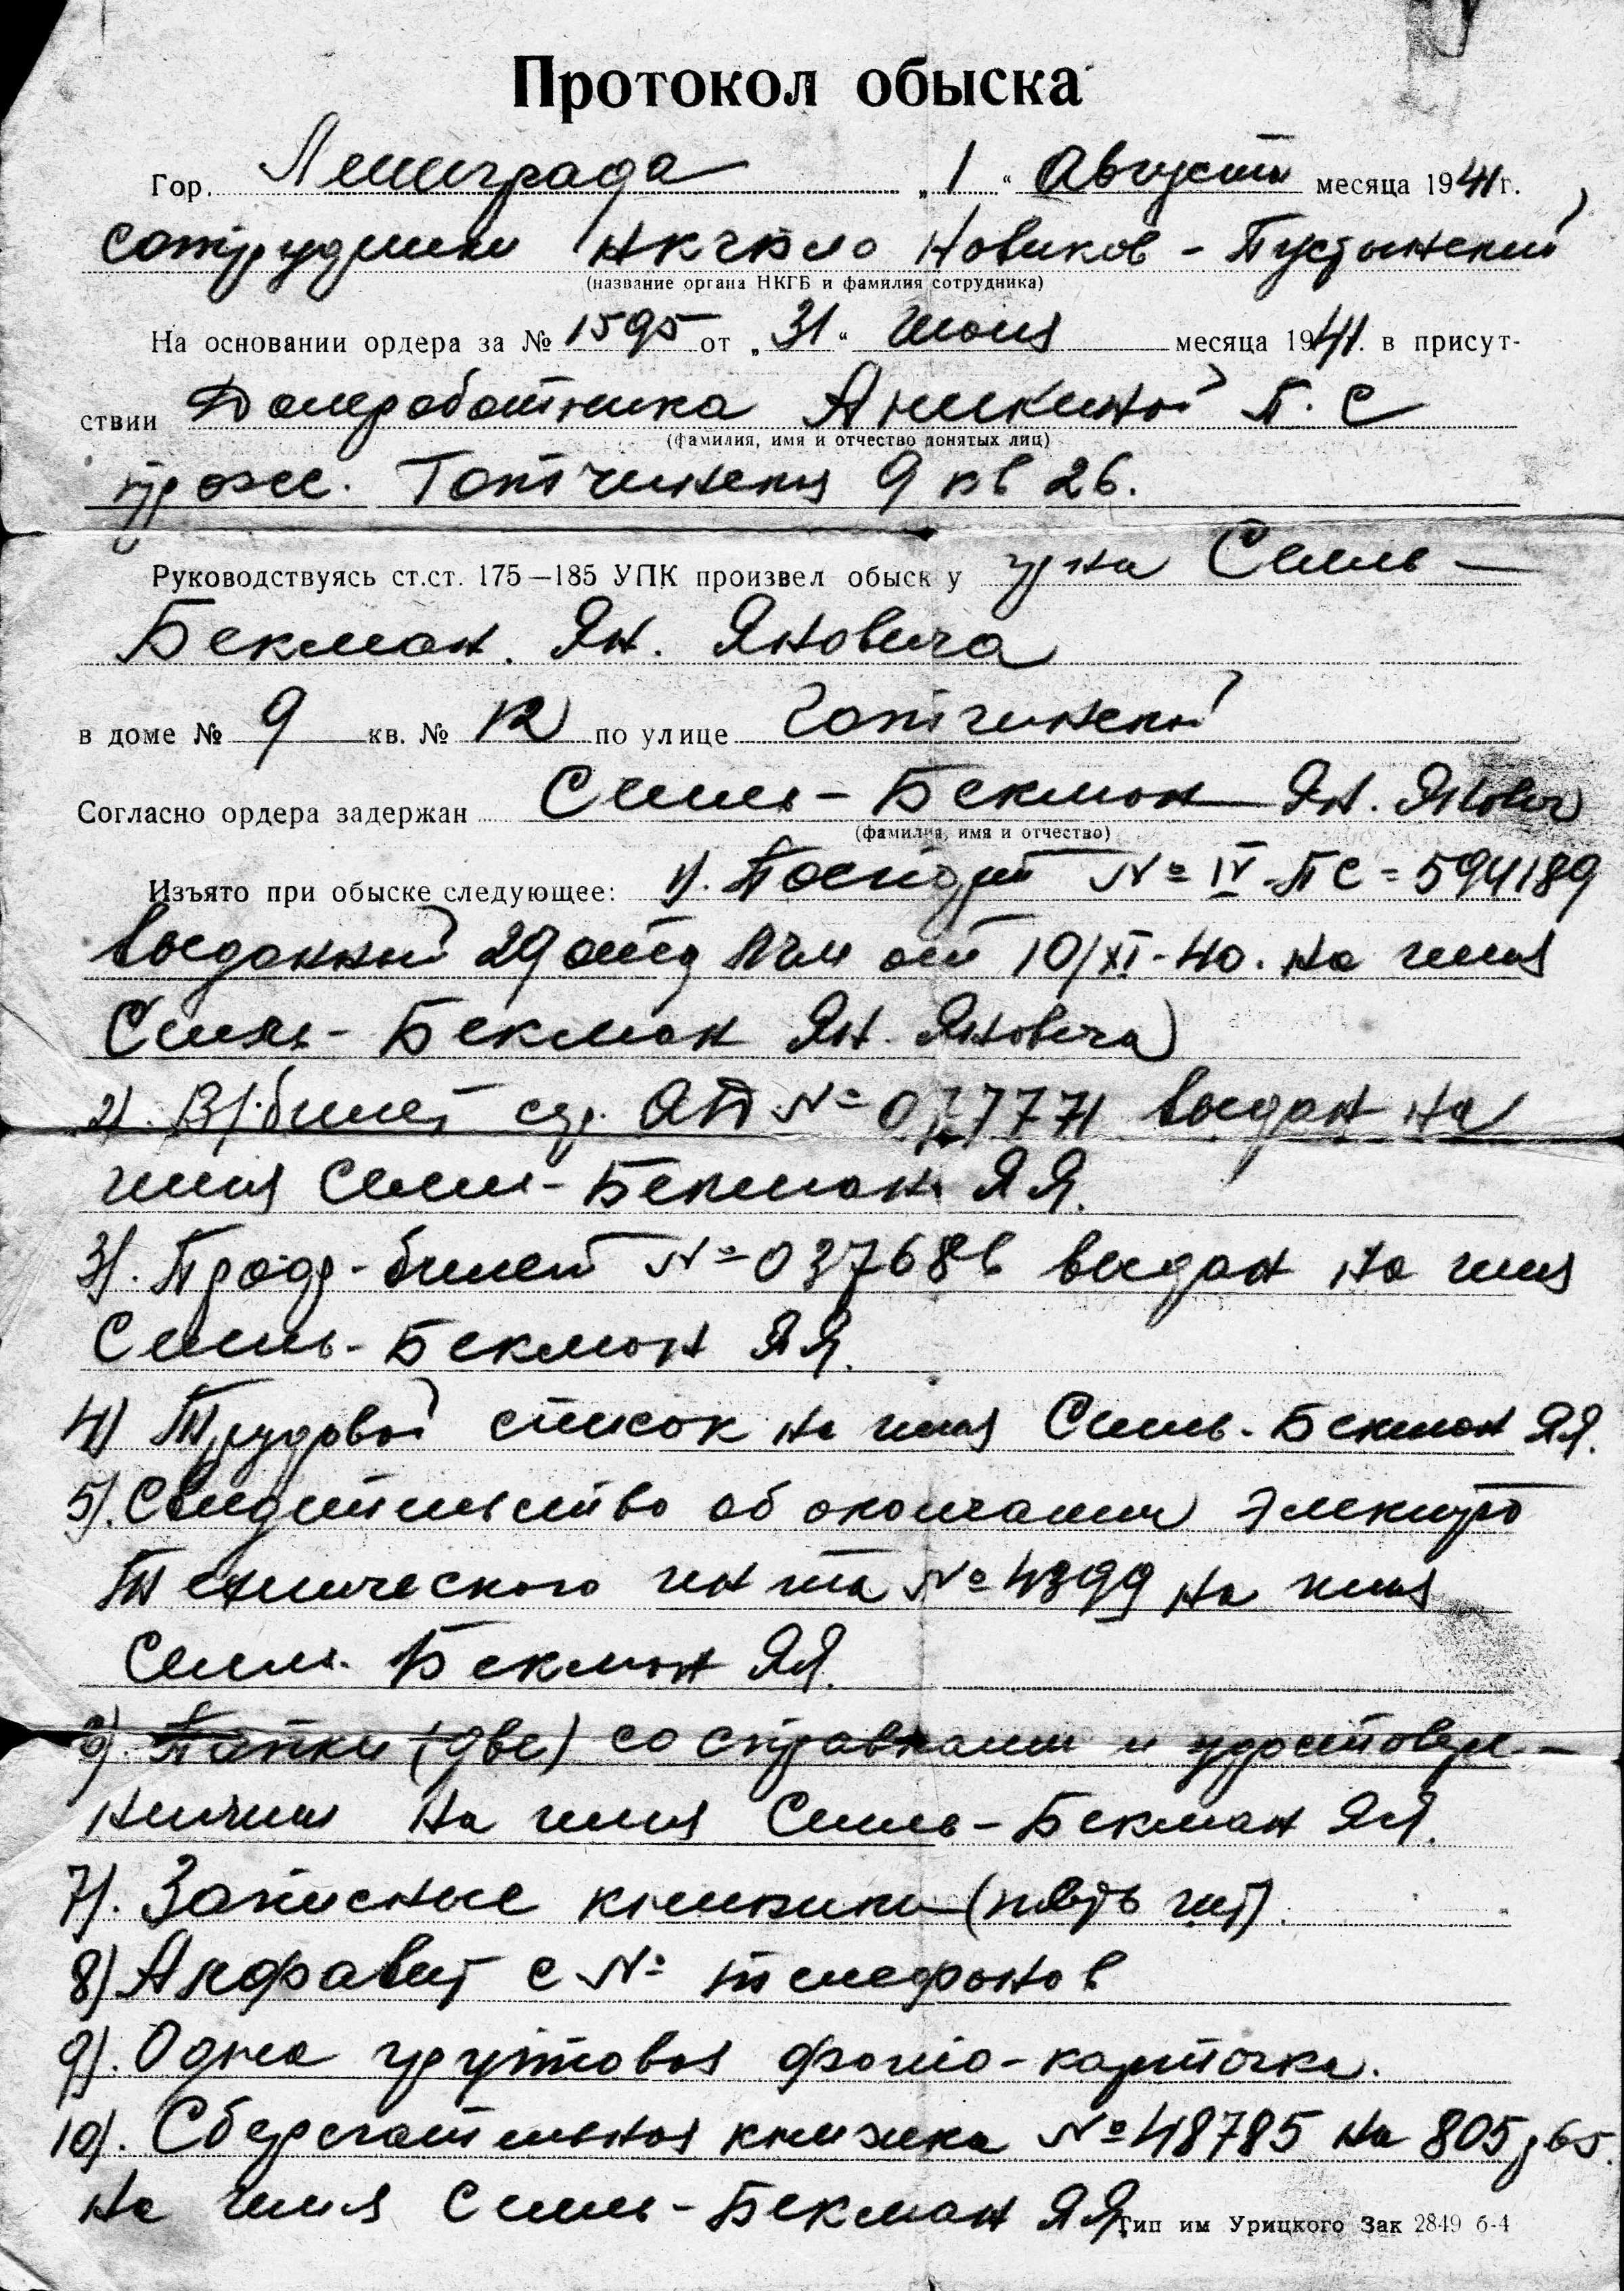 Протокол обыска
Гор. Ленинграда „1“ Августа месяца 1941г.
сотрудник НКГБ ло Новиков - Пустынский
(название органа НКГБ и фамилия сотрудника)
На основании ордера за № 1595 от „31“ Июля месяца 1941. в присут-
ствии Домработника Аникиной П. С
(фамилия, имя и отчество понятых лиц)
прож. Гатчинская 9 кв 26.
Руководствуясь ст.ст. 175—185 УПК произвел обыск у гр-на Силль -
Бекман. Ян. Яновича
в доме № 9 кв. № 12 по улице Гатчинской
Согласно ордера задержан Силль - Бекман Ян. Янович
(фамилия, имя и отчество)
Изъято при обыске следующее: 1). Паспорт № IV-ПС = 594189
выданный 29 отд ЛГМ от 10/XI-40. на имя
Силль - Бекман Ян. Яновича
2). В/билет сер. АП № 077771 выдан на
имя Силль - Бекман Я Я.
3). Проф-билет № 037686 выдан на имя
Силль - Бекман Я Я.
4) Трудовой список на имя Силль - Бекман Я Я.
5). Свидетельство об окончании Электро
Технического ин та № 4399 на имя
Силль - Бекман Я Я.
6). Папки (две) со справками и удостовере-
ниями на имя Силль - Бекман Я Я.
7). Записные книжки (пять шт).
8) Алфавит с № телефонов
9). Одна групповая фото - карточка.
10). Сберегательная книжка № 48785 на 805 р 65.
на имя Силль - Бекман Я Я.
Тип им Урицкого Зак 2849 б-4